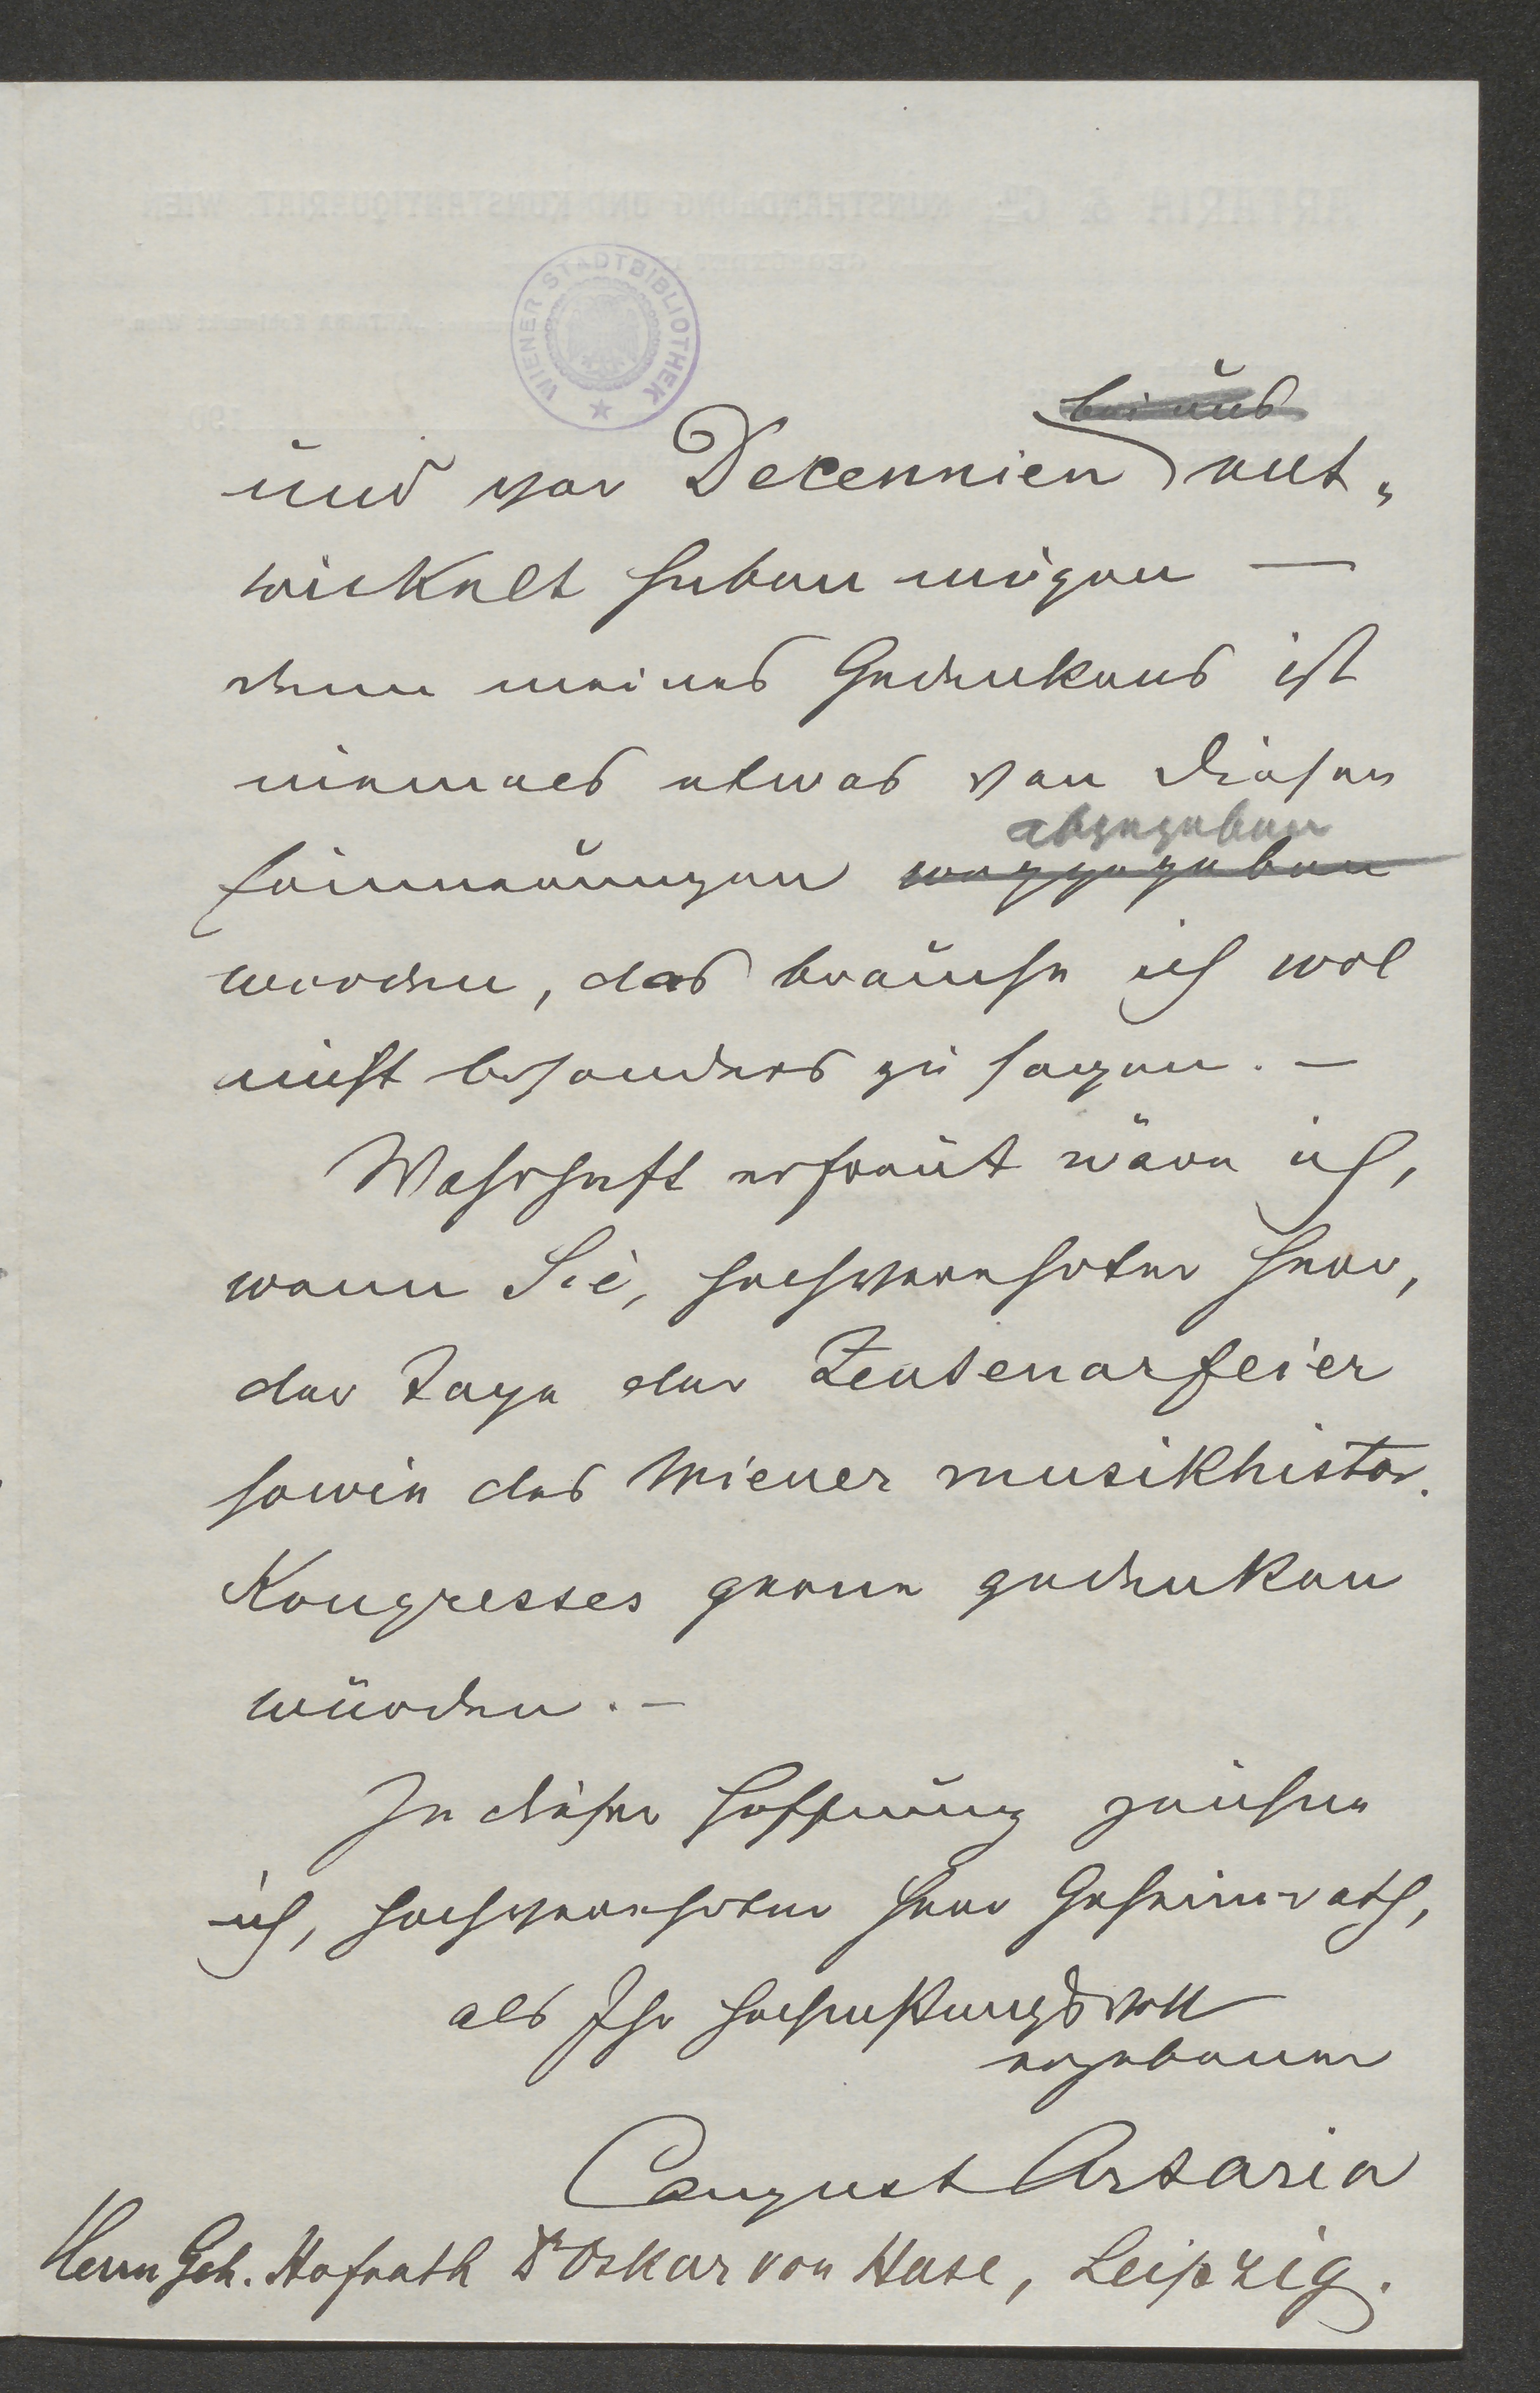 WIENER STADTBIBLIOTHEK
bei uns
und vor Decennien ent„
wickelt haben mögen —
denn meines Gedenkens ist
niemals etwas von diesen
abgegeben
Erinnerungen weggegeben
worden, das brauche ich wol
nicht besonders zu sagen. —
Wahrhaft erfreut wäre ich,
wenn Sie, hochverehrter Herr,
der Tage der Zentenarfeier
sowie des Wiener musikhistor.
Kongresses gerne gedenken
würden. —
In dieser Hoffnung zeichne
ich, hochverehrter Herr Geheimrath,
als Ihr hochachtungsvoll
ergebener
August Artaria
Herrn Geh. Hofrath Dr Oskar von Hase, Leipzig.